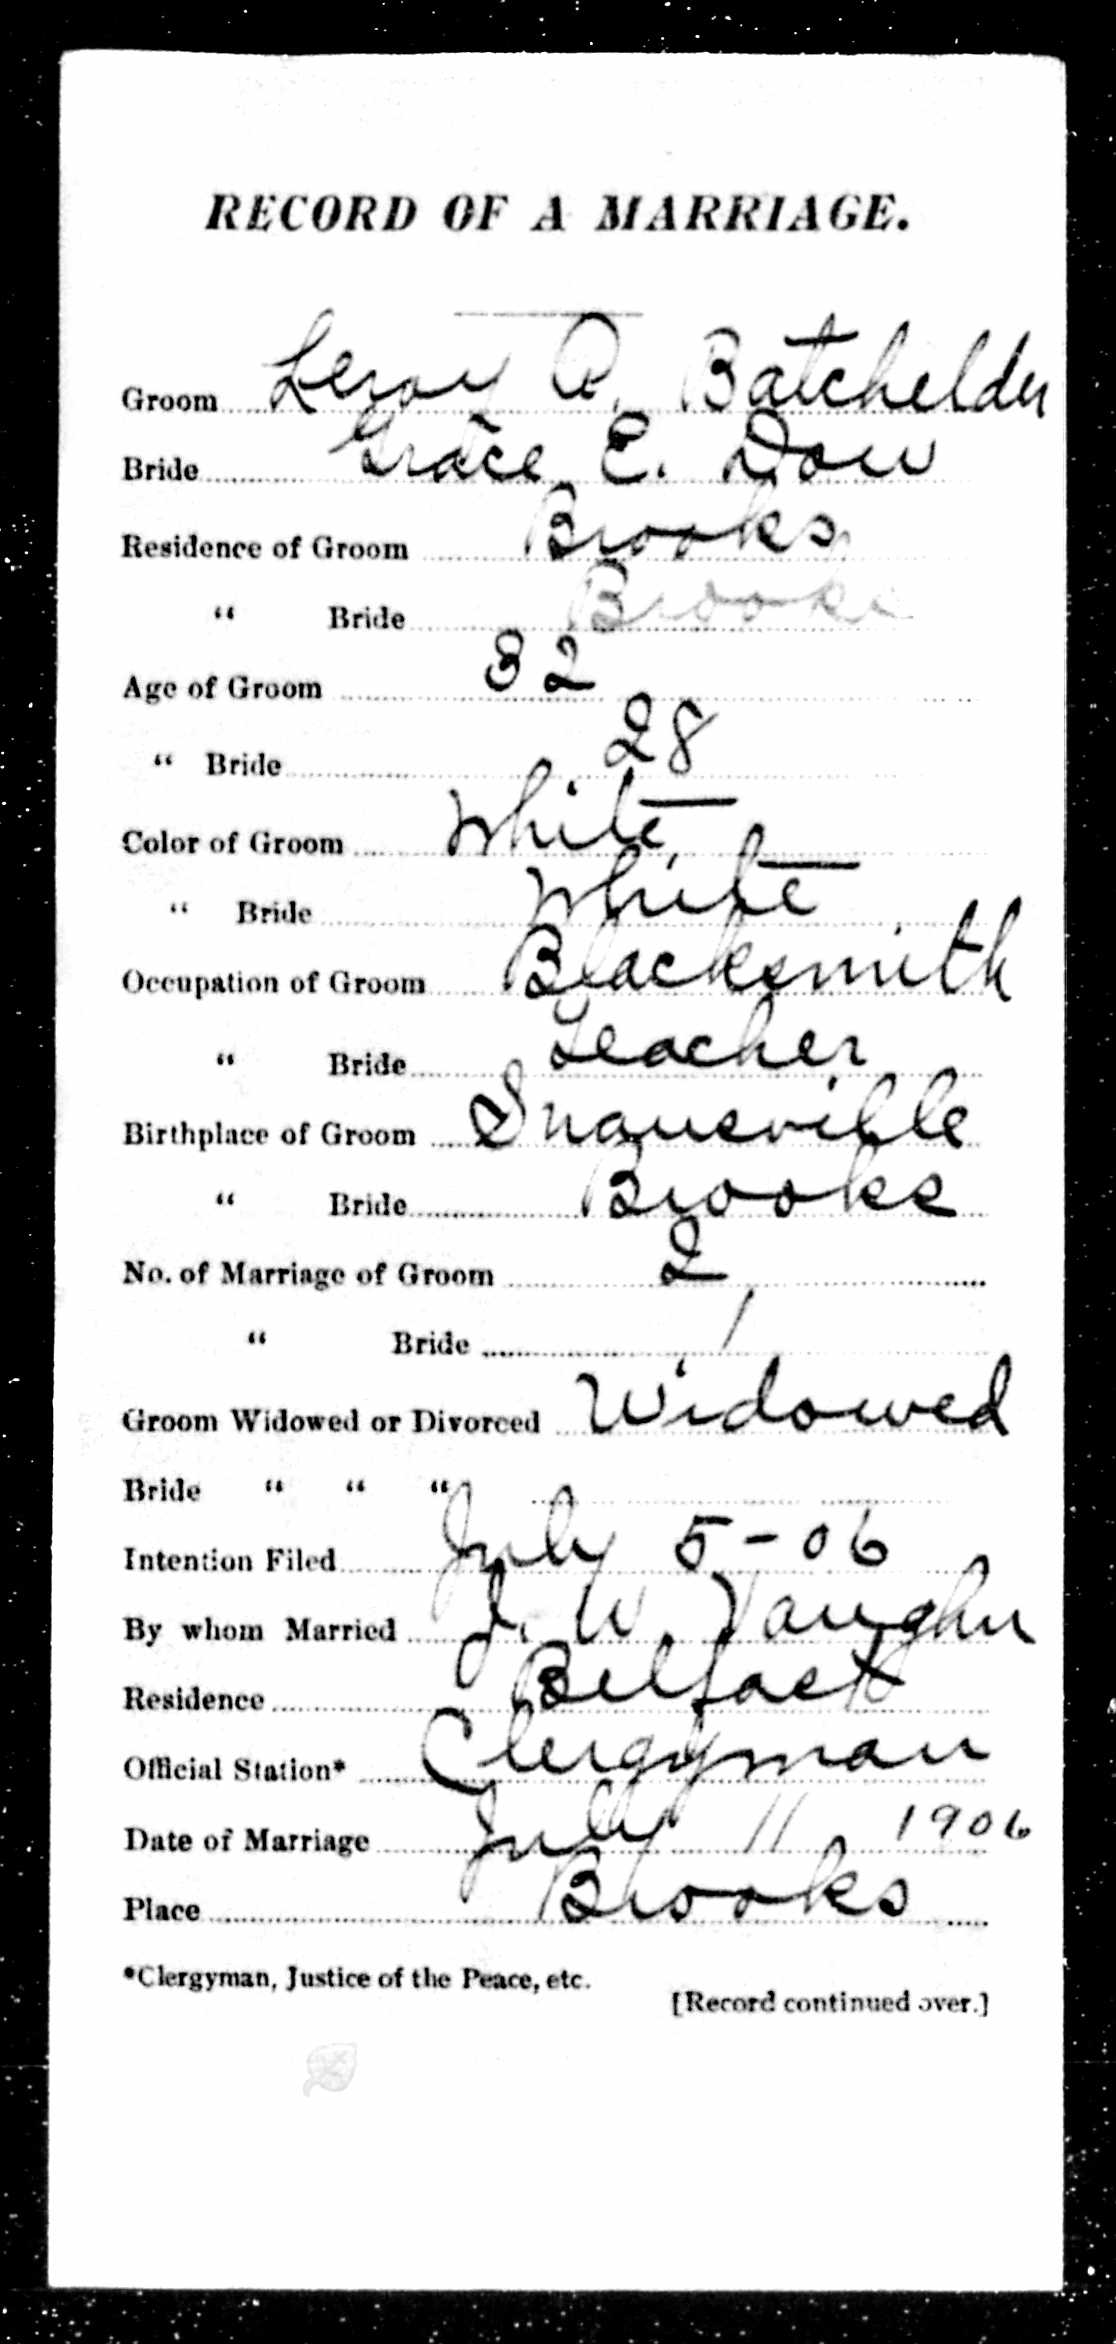 RECORD OF A MARRIAGE.
Groom Leroy A. Batchelder
Bride Grace E. Dow
Residence of Groom Brooks
" Bride Brooks
Age of Groom 32
" Bride 28
Color of Groom White
" Bride White
Occupation of Groom Blacksmith
" Bride Teacher
Birthplace of Groom
" Bride Brooks
No. of Marriage of Groom 2
" Bride 1
Groom Widowed or Divorced Widowed
Bride " " "
Intention Filed July 5-06
By whom Married J. W. Vaughn
Residence Belfast
Official Station* Clergyman
Date of Marriage July 11 1906
Place Brooks
*Clergyman, Justice of the Peace, etc.
[Record continued over.]